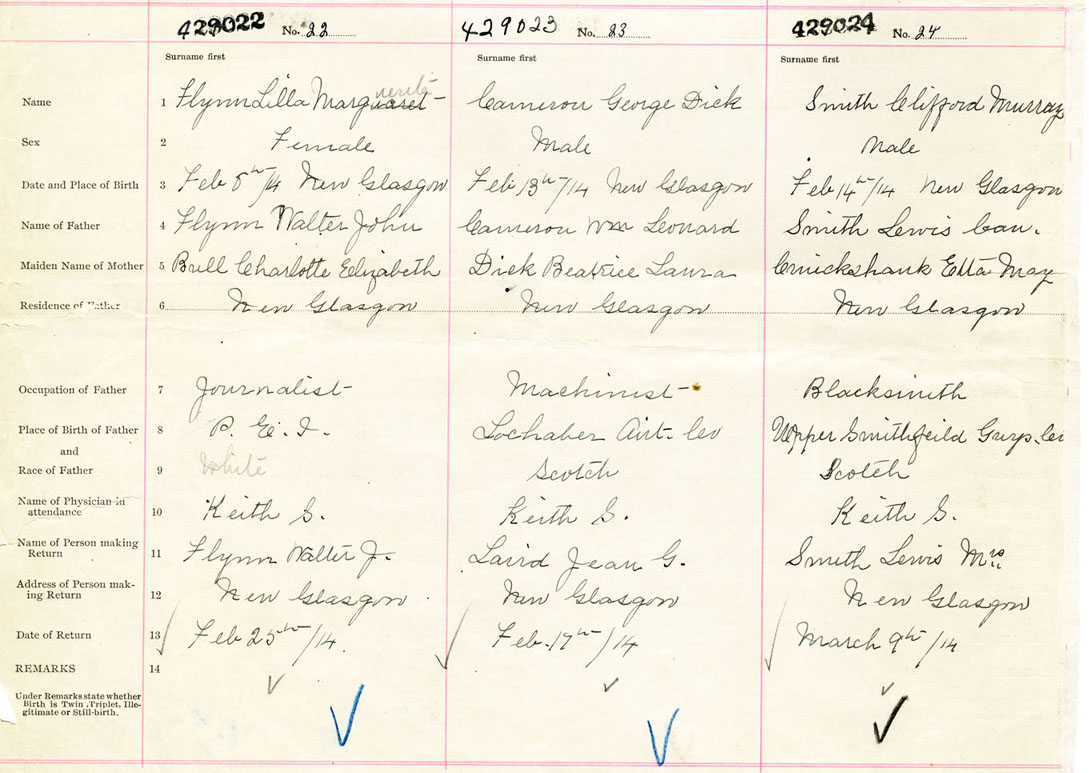 429022 No. 22 429023 No. 23 429024 No. 24
Surname first Surname first Surname first
Name 1 Flynn Lilla Marguaret Cameron George Dick Smith Clifford Murray
uerite
Sex 2 Female Male Male
Date and Place of Birth 3 Feb 8th/14 New Glasgow Feb 13th/14 New Glasgow Feb 14th/14 New Glasgow
Name of Father 4 Flynn Walter John Cameron Wm Leonard Smith Lewis Cam.
Maiden Name of Mother 5 Bull Charlotte Elizabeth Dick Beatrice Laura Cruickshank Etta May
Residence of Father 6 New Glasgow New Glasgow New Glasgow
Occupation of Father 7 Journalist Machinist Blacksmith
Place of Birth of Father 8 P. E. I. Lochaber Ant. Co Upper Smithfeild Guys. Co
and
Race of Father 9 White Scotch Scotch
Name of Physician in
attendance 10 Keith S. Keith S. Keith S.
Name of Person making
Return 11 Flynn Walter J. Laird Jean G. Smith Lewis Mrs
Address of Person mak-
ing Return 12 New Glasgow New Glasgow New Glasgow
Date of Return 13 Feb 25th/14. Feb. 17th/14 March 9th/14
REMARKS 14
Under Remarks state whether
Birth is Twin, Triplet, Ille-
gitimate or Still-birth.